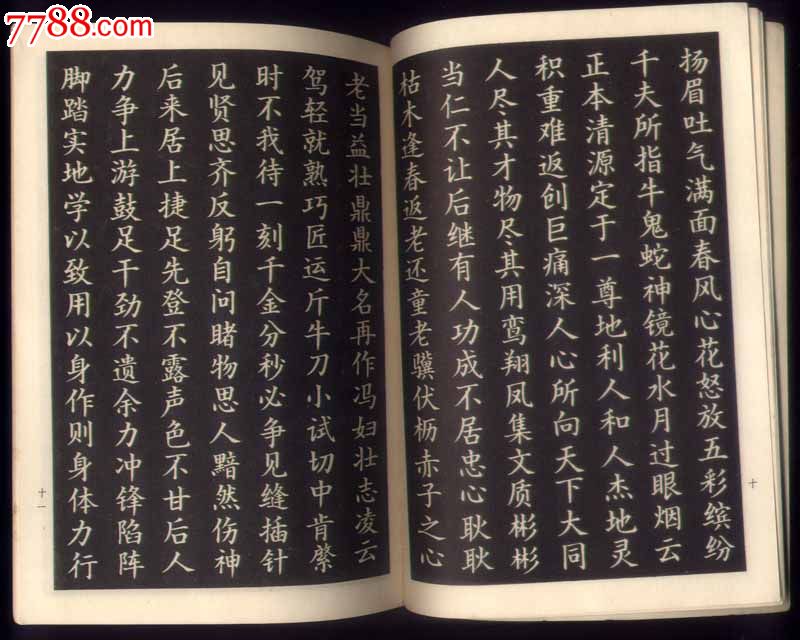 7788.com
扬眉吐气满面春风心花怒放五彩缤纷
千夫所指牛鬼蛇神镜花水月过眼烟云
正本清源定于一尊地利人和人杰地灵
积重难返创巨痛深人心所向天下大同
人尽其才物尽其用鸾翔凤集文质彬彬
当仁不让后继有人功成不居忠心耿耿
枯木逢春返老还童老骥伏枥赤子之心
十
老当益壮鼎鼎大名再作冯妇壮志凌云
驾轻就熟巧匠运斤牛刀小试切中肯綮
时不我待一刻千金分秒必争见缝插针
见贤思齐反躬自问睹物思人黯然伤神
后来居上捷足先登不露声色不甘后人
力争上游鼓足干劲不遗余力冲锋陷阵
脚踏实地学以致用以身作则身体力行
十一